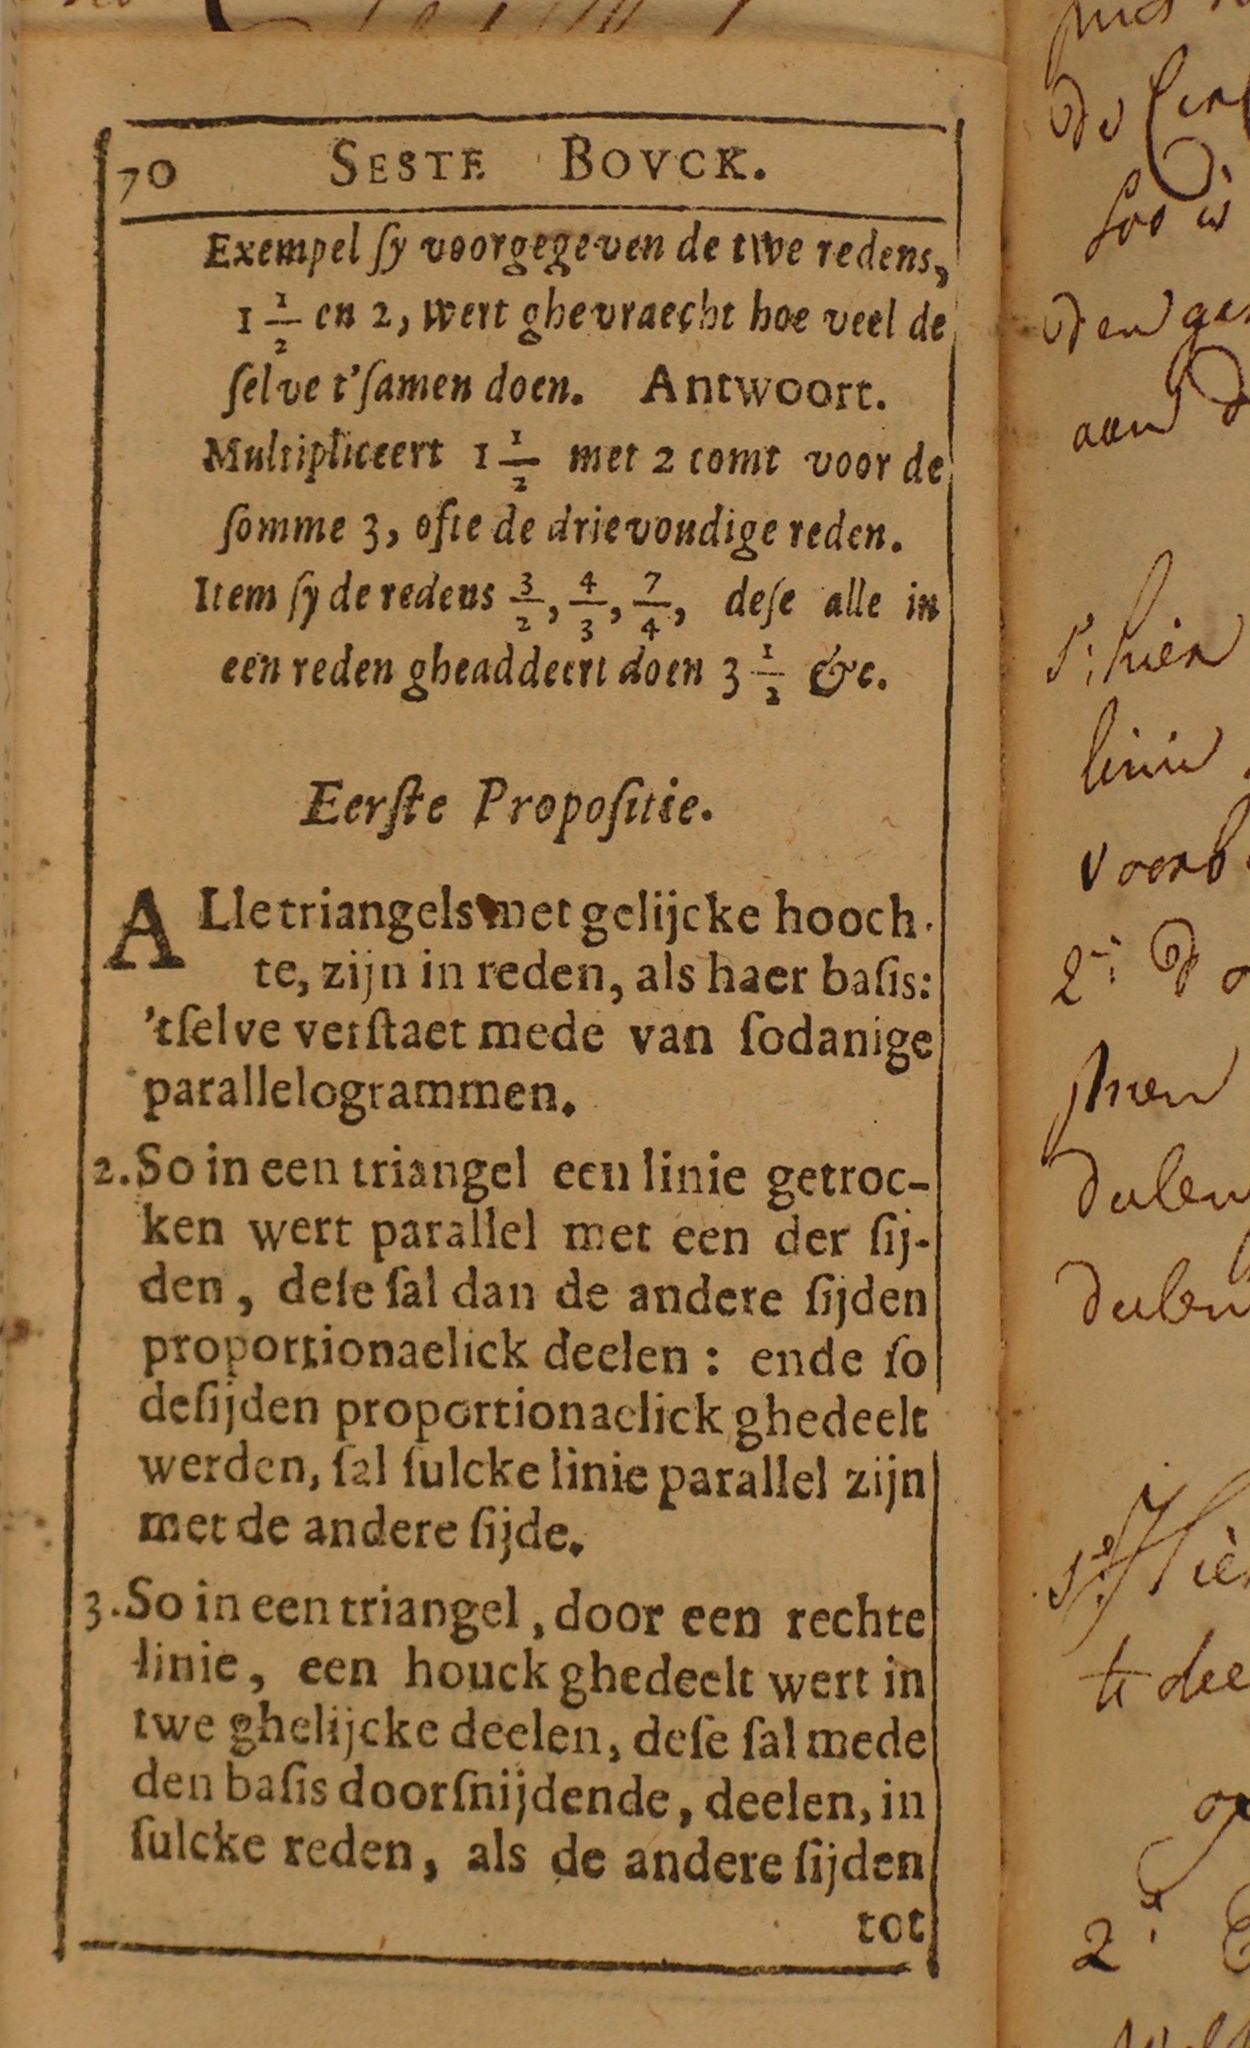 70 SESTE BOVCK.
Exempel ſy voorgegeven de twe redens,
1 1/2 en 2, wert ghevraecht hoe veel de
ſelve t'ſamen doen. Antwoort.
Multipliceert 1 1/2 met 2 comt voor de
ſomme 3, ofte de drievoudige reden.
Item ſy de redens 3/2, 4/3, 7/4, deſe alle in
een reden gheaddeert doen 3 1/2 &c.
Eerſte Propoſitie.
ALle triangels met gelijcke hooch-
te, zijn in reden, als haer baſis:
'tſelve verſtaet mede van ſodanige
parallelogrammen.
2. So in een triangel een linie getroc-
ken wert parallel met een der ſij-
den, deſe ſal dan de andere ſijden
proportionaelick deelen: ende ſo
de ſijden proportionaelick ghedeelt
werden, ſal ſulcke linie parallel zijn
met de andere ſijde.
3. So in een triangel, door een rechte
linie, een houck ghedeelt wert in
twe ghelijcke deelen, deſe ſal mede
den baſis doorſnijdende, deelen, in
ſulcke reden, als de andere ſijden
tot
de
soo is
den
aan
hier
linie
2